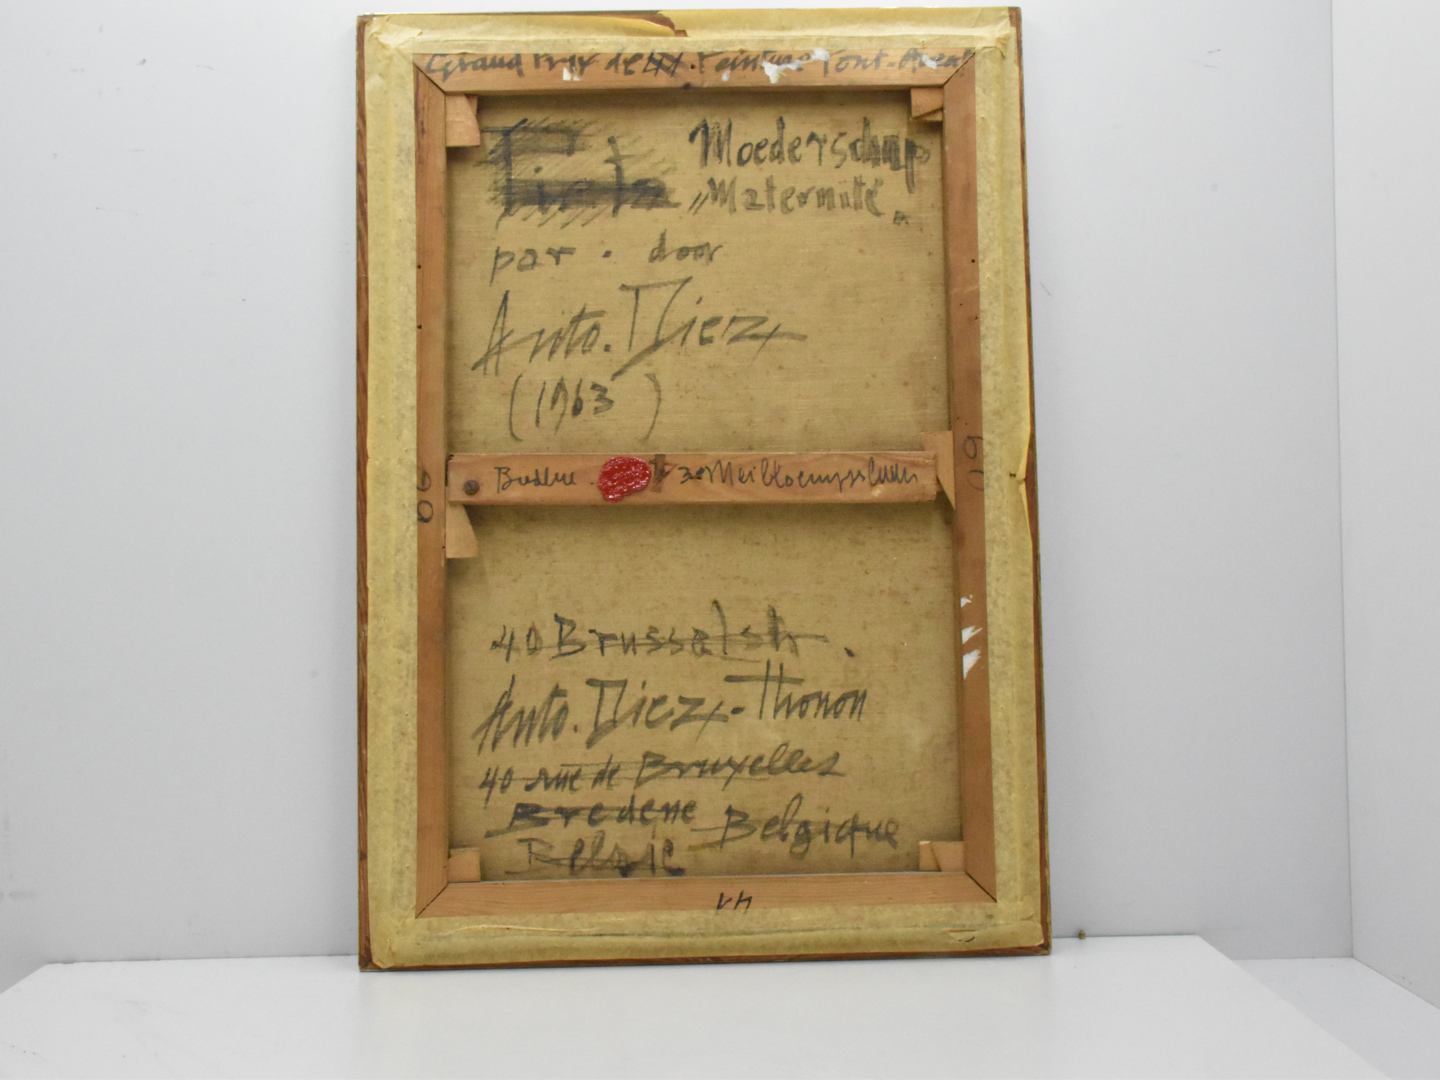 Grand Prix de Peinture Pont-Aven
Moederschap
„Maternité„
par . door
Anto. Diez
(1963)
60
60
40 Brusselsh .
Anto. Diez - Thonon
40 rue de Bruxelles
Bredene Belgique
België
41